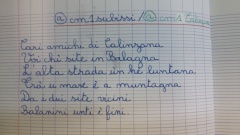 @ cm1 subissi / @ cm1
Cari amichi di Calinzana
Voi chi site in Balagna
L'alta strada ùn hè luntana
Trà u mare è a muntagna
Da i dui site vicini
Balanini unti è fini